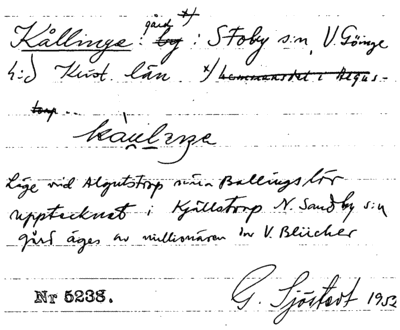 gård x)
Kållinge : by : Stoby s:n, V. Göinge
h:d Krist. län. x) hemmansdel i Régis-
torp
kàu̡lɩŋa
Läge vid Algutstorp nära Ballingslöv
upptecknat i Kjällstorp N. Sandby s:n
gård äges av millionären V. Blücher
Nr 5238.
G. Sjöstedt 1952